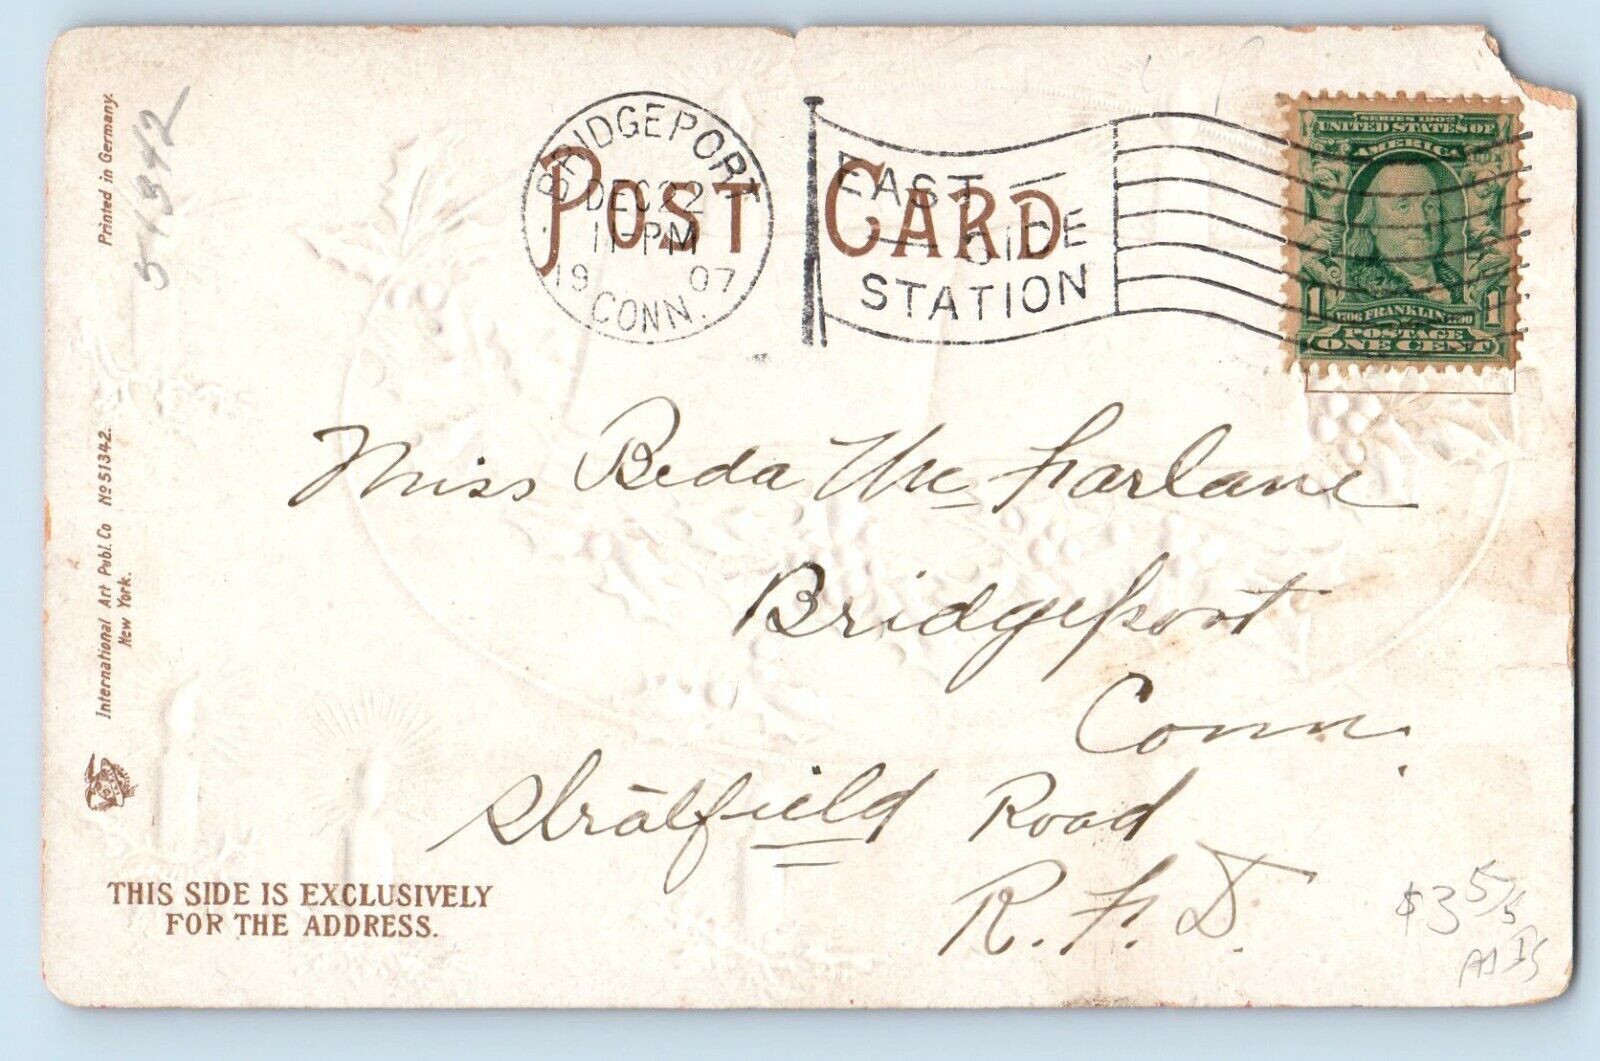 Printed in Germany.
51342
International Art Publ. Co No 51342.
New York.
BRIDGEPORT
DEC 22
11-PM
1907
CONN.
POST CARD
EAST
SIDE
STATION
SERIES 1902
UNITED STATES OF
AMERICA
1 1706 FRANKLIN 1790 1
POSTAGE
ONE CENT
Miss Beda Mc Farlane
Bridgeport
Conn.
Stratfield Road
R. F. D.
THIS SIDE IS EXCLUSIVELY
FOR THE ADDRESS.
$3 5/5
AS IS